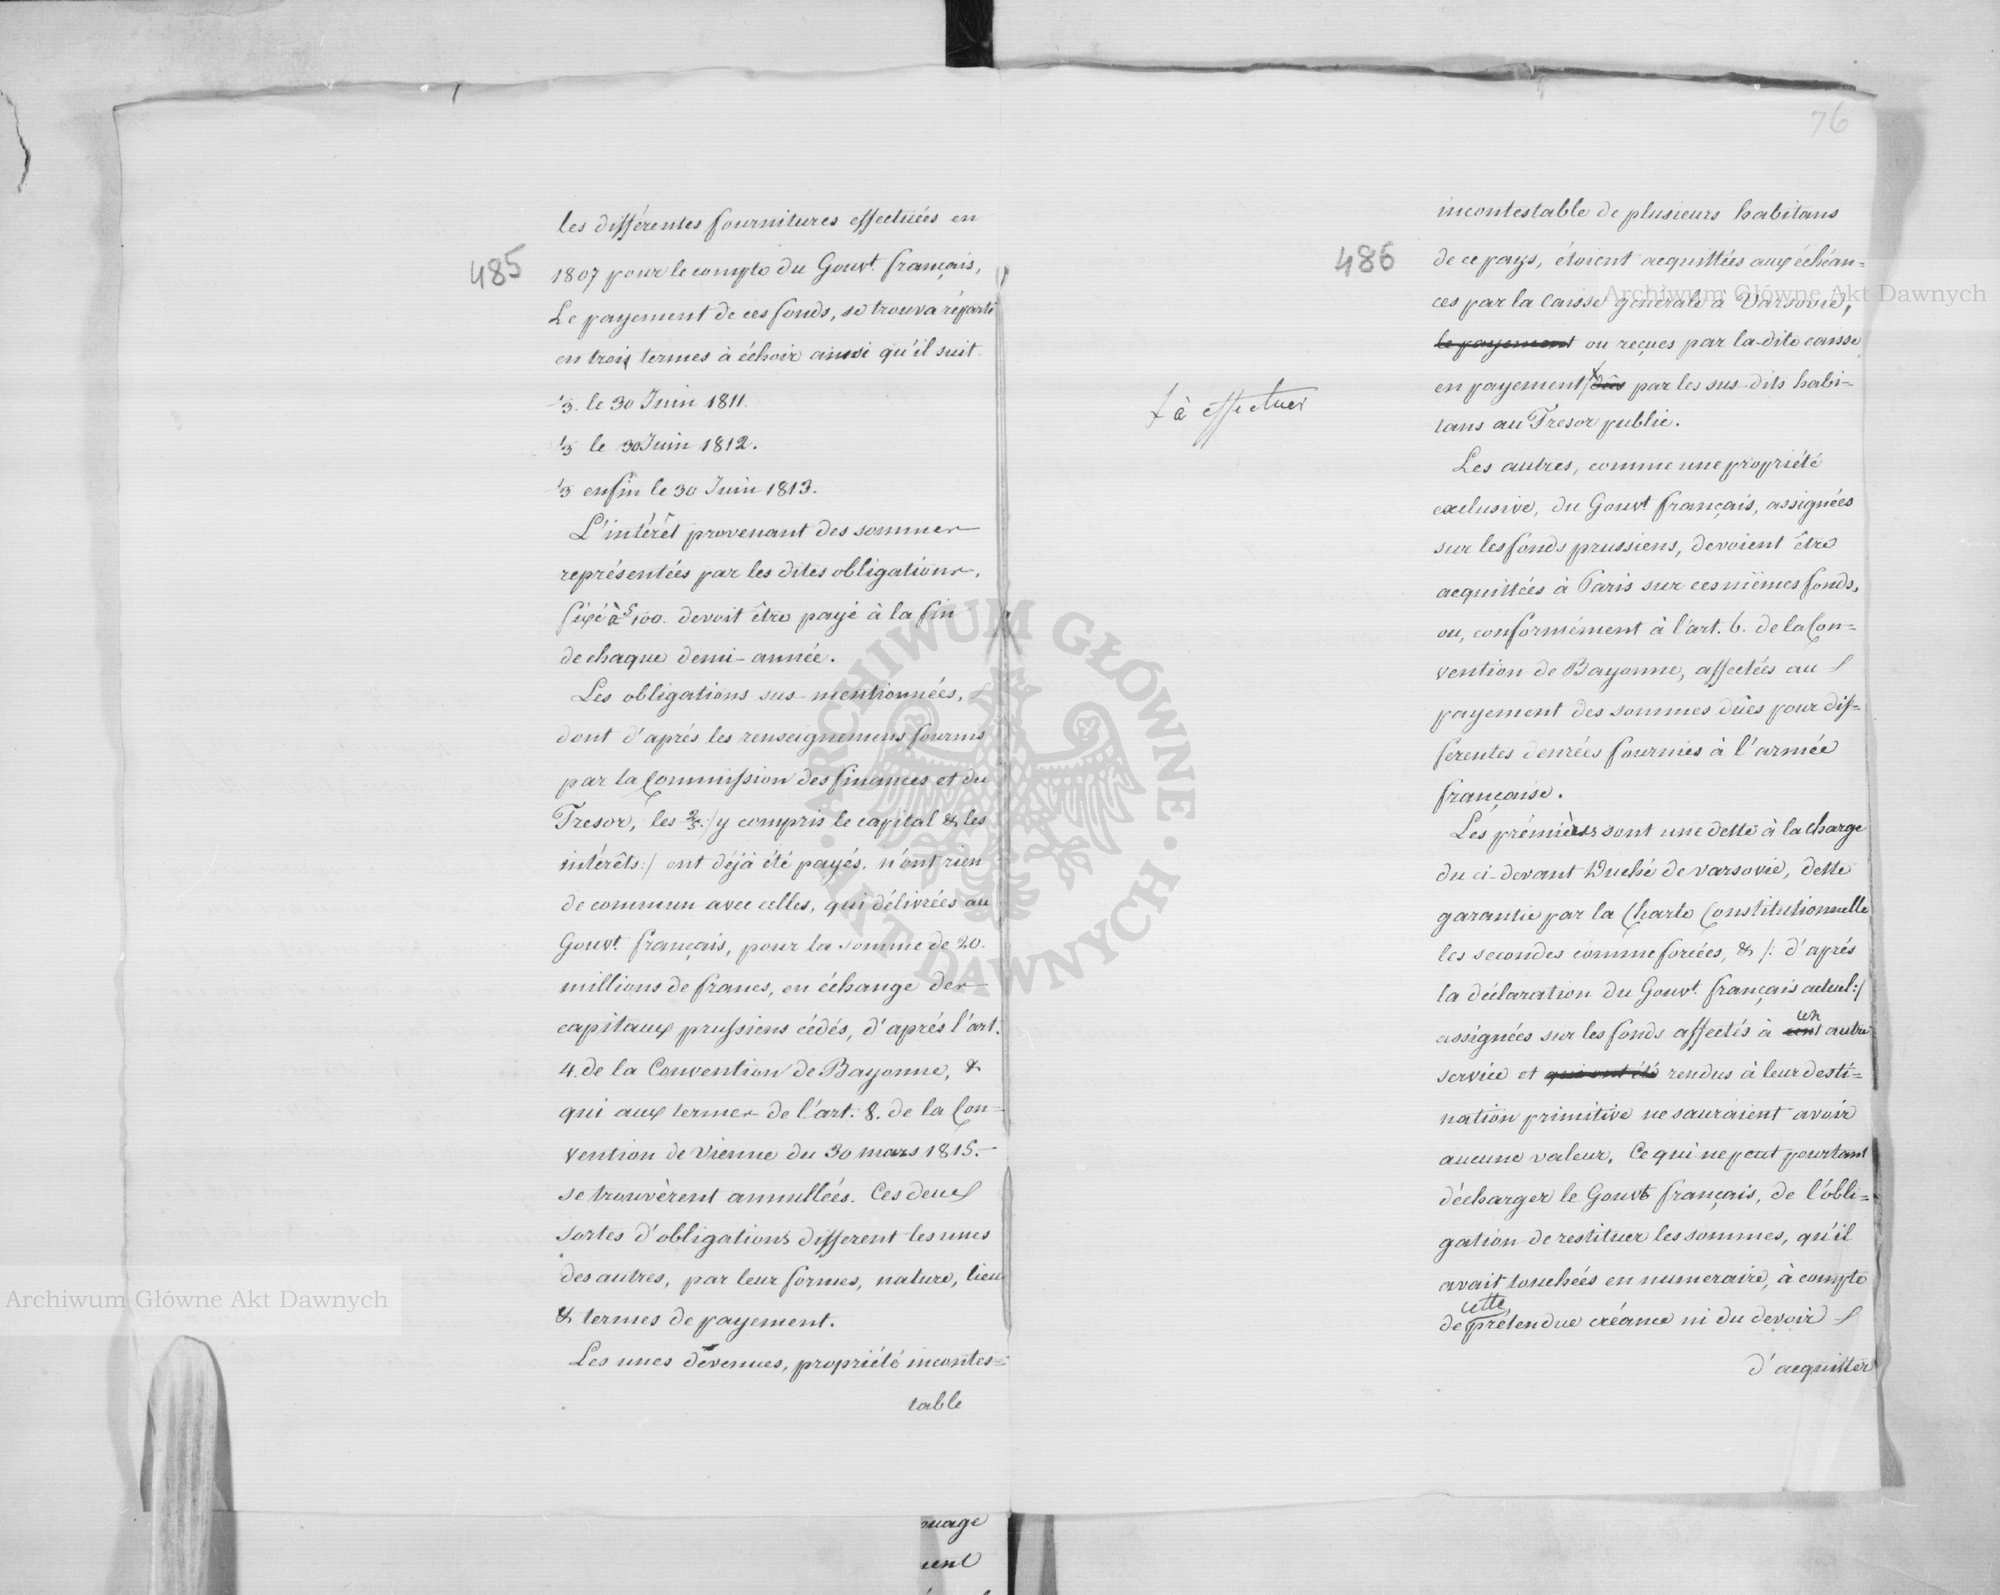 les différentes fournitures effectuées en
485
1807 pour le compte du Gouvt. français,
Le payement de ces fonds, se trouva réparti
en trois termes à échoir ainsi qu'il suit.
1/3. le 30 Juin 1811.
1/3 le 30 Juin 1812.
1/3 enfin le 30 Juin 1813.
L'intérêt provenant des sommes
représentées par les dites obligations,
fixé à 5/100. devoit être payé à la fin
de chaque demi-année.
Les obligations sus-mentionnées,
dont d'aprés les renseignemens fournis
par la Commission des finances et du
Tresor, les 2/3. :/ y compris le capital & les
intérêts:/ ont déjà été payés, n'ont rien
de commun avec celles, qui délivrées au
Gouvt. français, pour la somme de 20.
millions de francs, en échange des
capitaux prussiens cédés, d'aprés l'art.
4. de la Convention de Bayonne, &
qui aux termes de l'art. 8. de la Con=
vention de Vienne du 30 mars 1815.
se trouvèrent annullées. Ces deux
sortes d'obligations different les unes
des autres, par leur formes, nature, lieu
& termes de payement.
Les unes devenues, propriété incontes=
table
76
incontestable de plusieurs habitans
486
de ce pays, étoient acquittées aux échéan=
ces par la Caisse generale à Varsovie,
le payement ou reçues par la-dite caisse
en payement dûs par les sus-dits habi=
à effectuer
tans au Tresor public.
Les autres, comme une propriété
exclusive, du Gouvt français, assignées
sur les fonds prussiens, devoient être
acquittées à Paris sur ces mêmes fonds,
ou, conformément à l'art. 6. de la Con=
vention de Bayonne, affectées au
payement des sommes dûes pour dif=
ferentes denrées fournies à l'armée
française.
Les prémières sont une dette à la charge
du ci-devant Duché de varsovie, dette
garantie par la Charte Constitutionnelle
les secondes comme forcées, & /: d'aprés
la déclaration du Gouvt. français actuel:/
un
assignées sur les fonds affectés à autre
service et qui ont été rendus à leur desti=
nation primitive ne sauraient avoir
aucune valeur. Ce qui ne peut pourtant
décharger le Gouvt français, de l'obli=
gation de restituer les sommes, qu'il
avait touchées en numeraire, à compte
cette
de prétendue créance ni du devoir
d'acquitter
Archiwum Główne Akt Dawnych
Archiwum Główne Akt Dawnych
ARCHIWUM GŁÓWNE · AKT DAWNYCH ·